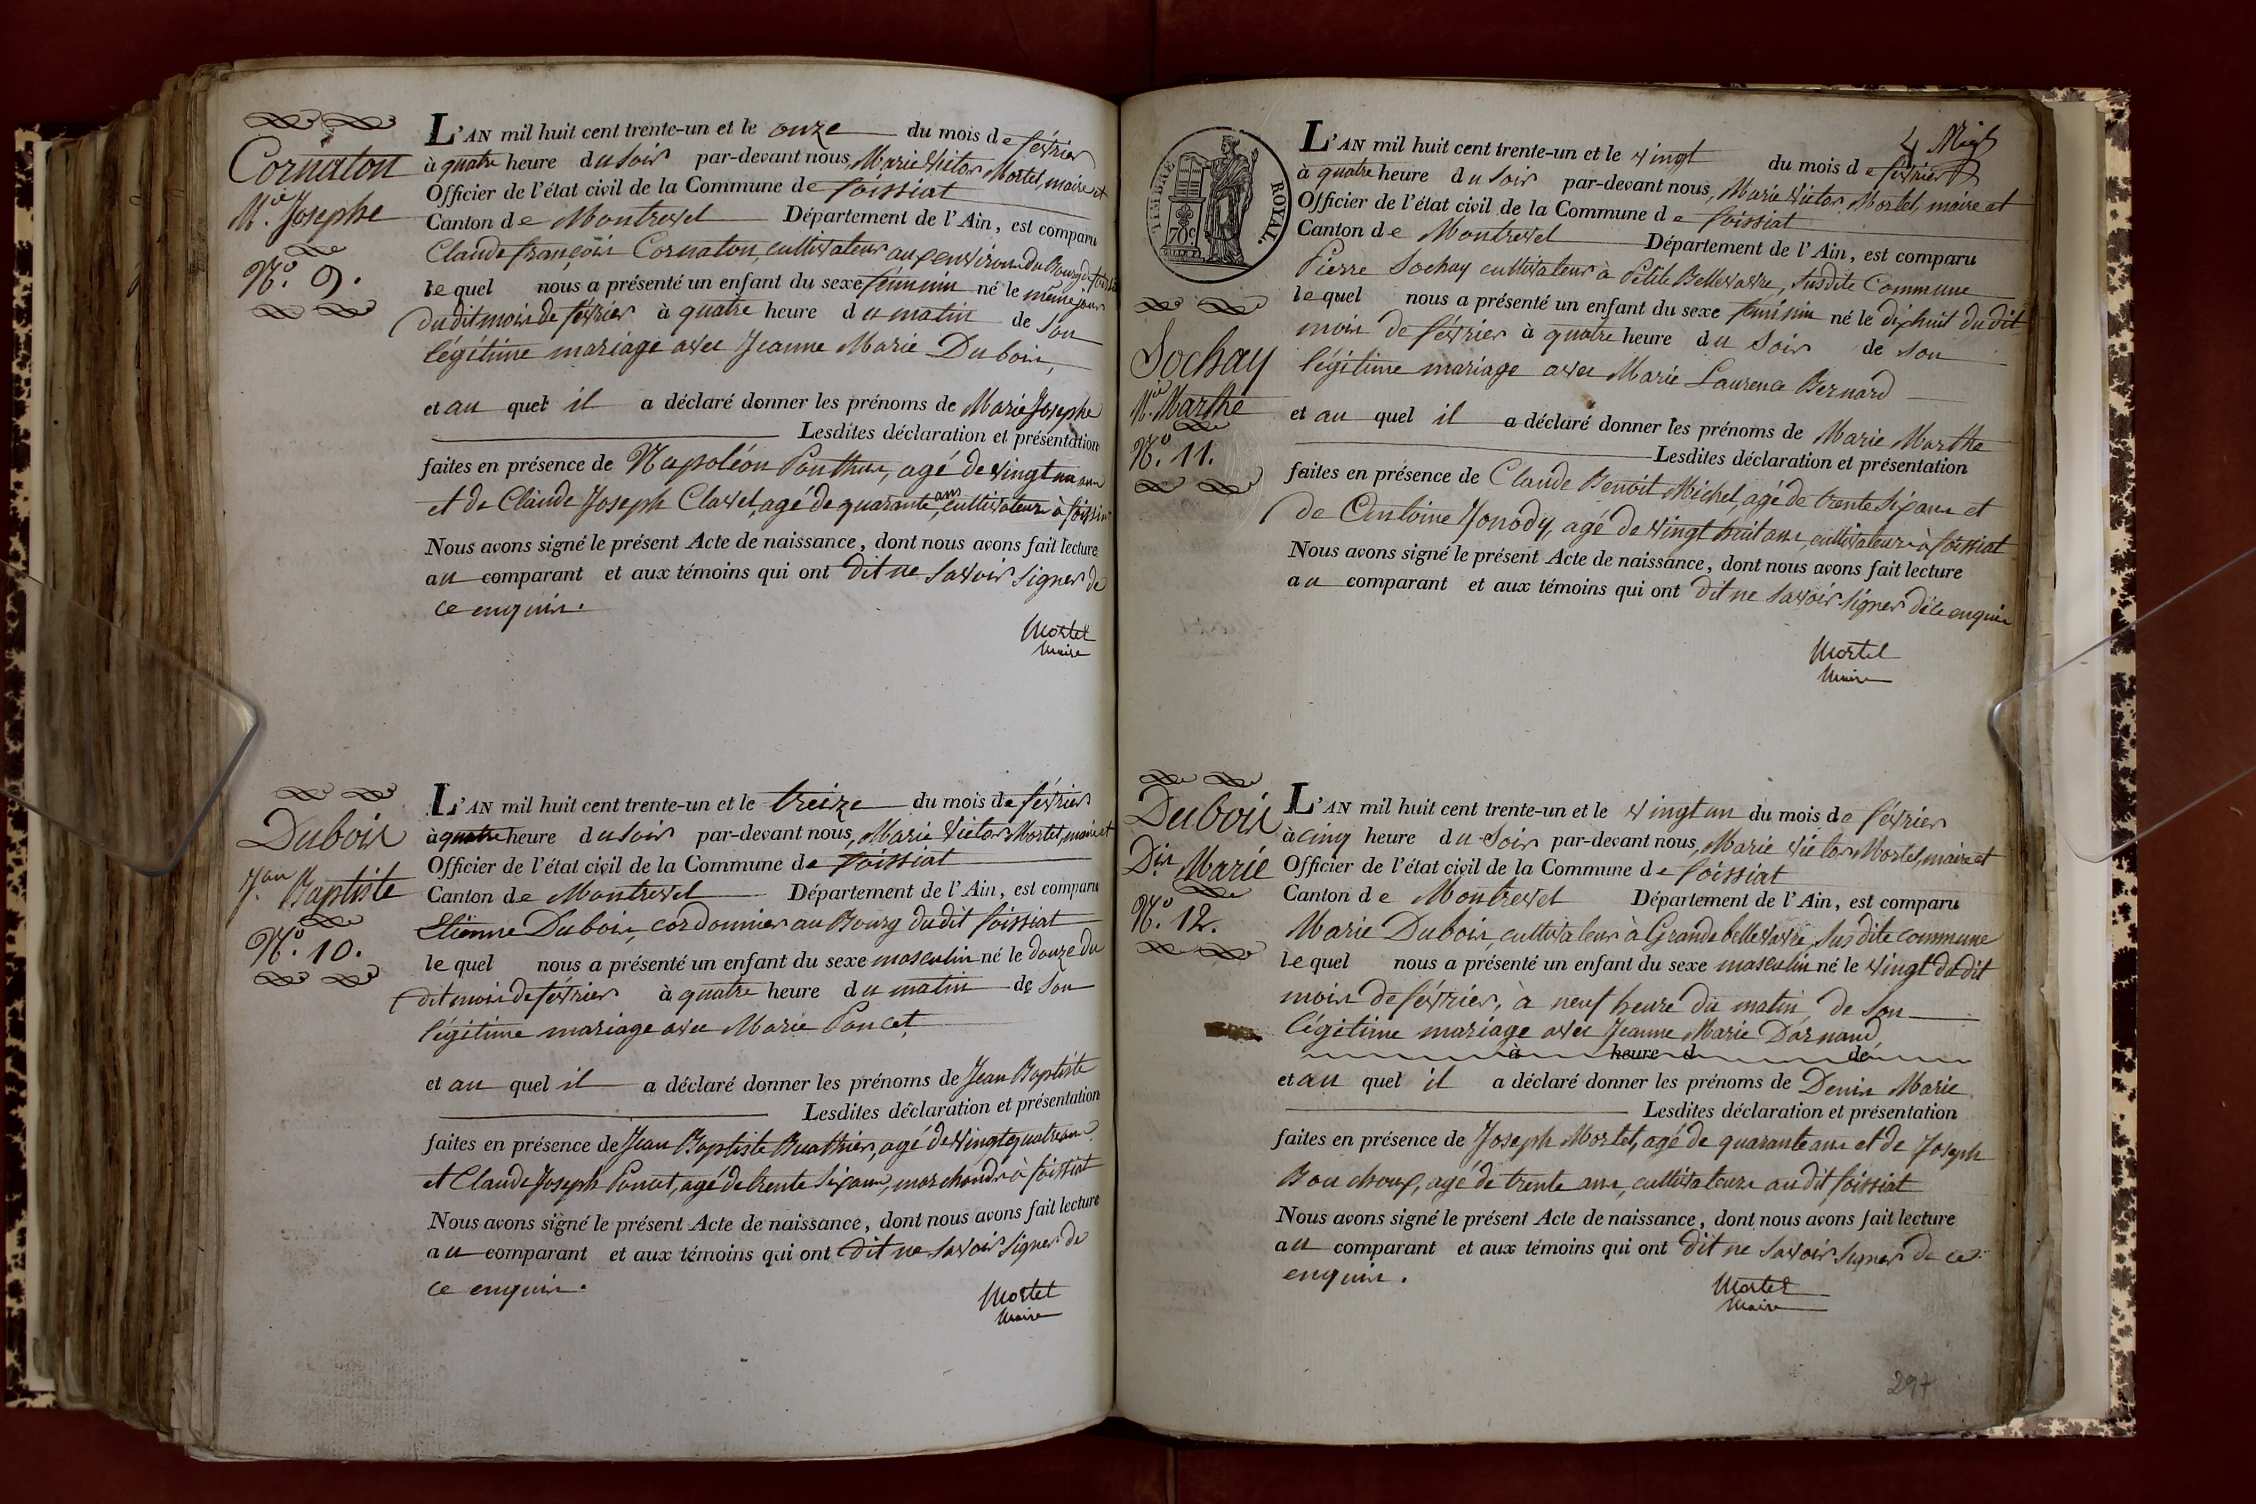 Cornaton
M.ie Josephe
N.o 9.
L'AN mil huit cent trente-un et le onze du mois de février
à quatre heure du soir par-devant nous, Marie Victor Mortel, maire et
Officier de l'état civil de la Commune de foissiat
Canton de Montrevel Département de l'Ain, est comparu
Claude françois Cornaton, cultivateur aux environs du Bourg de
lequel nous a présenté un enfant du sexe féminin né le même jour
dudit mois de février à quatre heure du matin de son
légitime mariage avec Jeanne Marie Dubois,
et au quel il a déclaré donner les prénoms de Marie Josephe
Lesdites déclaration et présentation
faites en présence de Napoléon Ponthus, agé de vingt un ans
et de Claude Joseph Clavel, agé de quarante ans, cultivateurs à foissiat
Nous avons signé le présent Acte de naissance, dont nous avons fait lecture
au comparant et aux témoins qui ont dit ne savoir signer de
ce enquis.
Mortel
Maire
Dubois
J.an Baptiste
N.o 10.
L'AN mil huit cent trente-un et le treize du mois de février
à quatre heure du soir par-devant nous, Marie Victor Mortel, maire et
Officier de l'état civil de la Commune de foissiat
Canton de Montrevel Département de l'Ain, est comparu
Etienne Dubois, cordonnier au Bourg dudit foissiat
lequel nous a présenté un enfant du sexe masculin né le douze du
dit mois de février à quatre heure du matin de son
légitime mariage avec Marie Poncet
et au quel il a déclaré donner les prénoms de Jean Baptiste
Lesdites déclaration et présentation
faites en présence de Jean Baptiste Buathier, agé de vingt quatre ans
et Claude Joseph Poncet, agé de trente six ans, marchands à foissiat
Nous avons signé le présent Acte de naissance, dont nous avons fait lecture
au comparant et aux témoins qui ont dit ne savoir signer de
ce enquis.
Mortel
Maire
TIMBRE ROYAL.
70c
Sochay
M.ie Marthe
N.o 11.
L'AN mil huit cent trente-un et le vingt du mois de février
à quatre heure du soir par-devant nous, Marie Victor Mortel, maire et
Officier de l'état civil de la Commune de foissiat
Canton de Montrevel Département de l'Ain, est comparu
Pierre Sochay cultivateur à Petite Bellevavre, susdite Commune
lequel nous a présenté un enfant du sexe féminin né le dix huit dudit
mois de février à quatre heure du soir de son
légitime mariage avec Marie Laurence Bernard
et au quel il a déclaré donner les prénoms de Marie Marthe
Lesdites déclaration et présentation
faites en présence de Claude Benoit Michel, agé de trente six ans et
de Antoine Jonody, agé de vingt huit ans, cultivateurs à foissiat
Nous avons signé le présent Acte de naissance, dont nous avons fait lecture
au comparant et aux témoins qui ont dit ne savoir signer de ce enquis
Mortel
Maire
Dubois
D.is Marie
N.o 12.
L'AN mil huit cent trente-un et le vingt un du mois de février
à cinq heure du soir par-devant nous, Marie Victor Mortel, maire et
Officier de l'état civil de la Commune de foissiat
Canton de Montrevel Département de l'Ain, est comparu
Marie Dubois, cultivateur à Grande bellevavre, susdite commune
lequel nous a présenté un enfant du sexe masculin né le vingt dudit
mois de février, à neuf heure du matin, de son
légitime mariage avec Jeanne Marie Darnand,
à heure d de
et au quel il a déclaré donner les prénoms de Denis Marie
Lesdites déclaration et présentation
faites en présence de Joseph Mortel, agé de quarante ans et de Joseph
Bouchoux, agé de trente ans, cultivateurs audit foissiat
Nous avons signé le présent Acte de naissance, dont nous avons fait lecture
au comparant et aux témoins qui ont dit ne savoir signer de ce
enquis.
Mortel
Maire
297